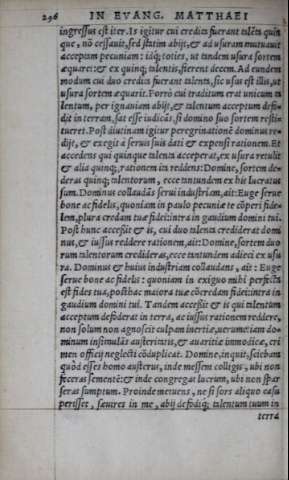 296 IN EVANG. MATTHAEI
ingressus est iter. Is igitur cui credita fuerant talẽta quin
que, nõ cessauit, sed statim abijt, & ad usuram mutuauit
acceptam pecuniam: idq; toties, ut tandem usura sortem
æquaret: & ex quinq; talentis, fierent decem. Ad eundem
modum cui duo credita fuerant talenta, sic usus est illis, ut
usura sortem æquarit. Porrò cui traditum erat unicum ta
lentum, per ignauiam abijt, & talentum acceptum defo-
dit in terram, sat esse iudicãs, si domino suo sortem resti-
tueret. Post diutinam igitur peregrinationẽ dominus re-
dijt, & exegit à seruis suis dati & expensi rationem. Et
accedens qui quinque talenta acceperat, ex usura retulit
& alia quinq;, rationem ita reddens: Domine, sortem de-
deras quinq; talentorum, ecce tantundem ex his lucratus
sum. Dominus collaudãs serui industriam, ait: Euge serue
bone ac fidelis, quoniam in paulo pecuniæ te cõperi fide-
lem, plura credam tuæ fidei: intra in gaudium domini tui.
Post hunc accessit & is, cui duo talenta crediderat domi
nus, & iussus reddere rationem, ait: Domine, sortem duo
rum talentorum credideras, ecce tantundem adieci ex usu
ra. Dominus & huius industriam collaudans, ait: Euge
serue bone ac fidelis: quoniam in exiguo mihi perfecta
est fides tua, posthac maiora tuæ cõcredam fidei: intra in
gaudium domini tui. Tandem accessit & is qui talentum
acceptum defoderat in terra, ac iussus rationem reddere,
non solum non agnoscit culpam inertiæ, uerumetiam do-
minum insimulãs austeritatis, & auaritiæ immodicæ, cri
men officij neglecti cõduplicat. Domine, inquit, sciebam
quòd esses homo austerus, inde messem colligis, ubi non
feceras sementẽ: & inde congregas lucrum, ubi non spar
seras sumptum. Proinde metuens, ne si sors aliquo casu
perisset, sæuires in me, abij defodiq; talentum tuum in
terra